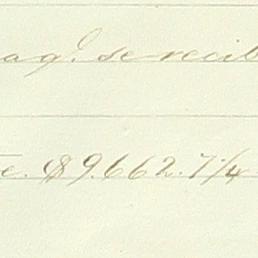 aqᵉ. se recib
te. $9.662.7¼